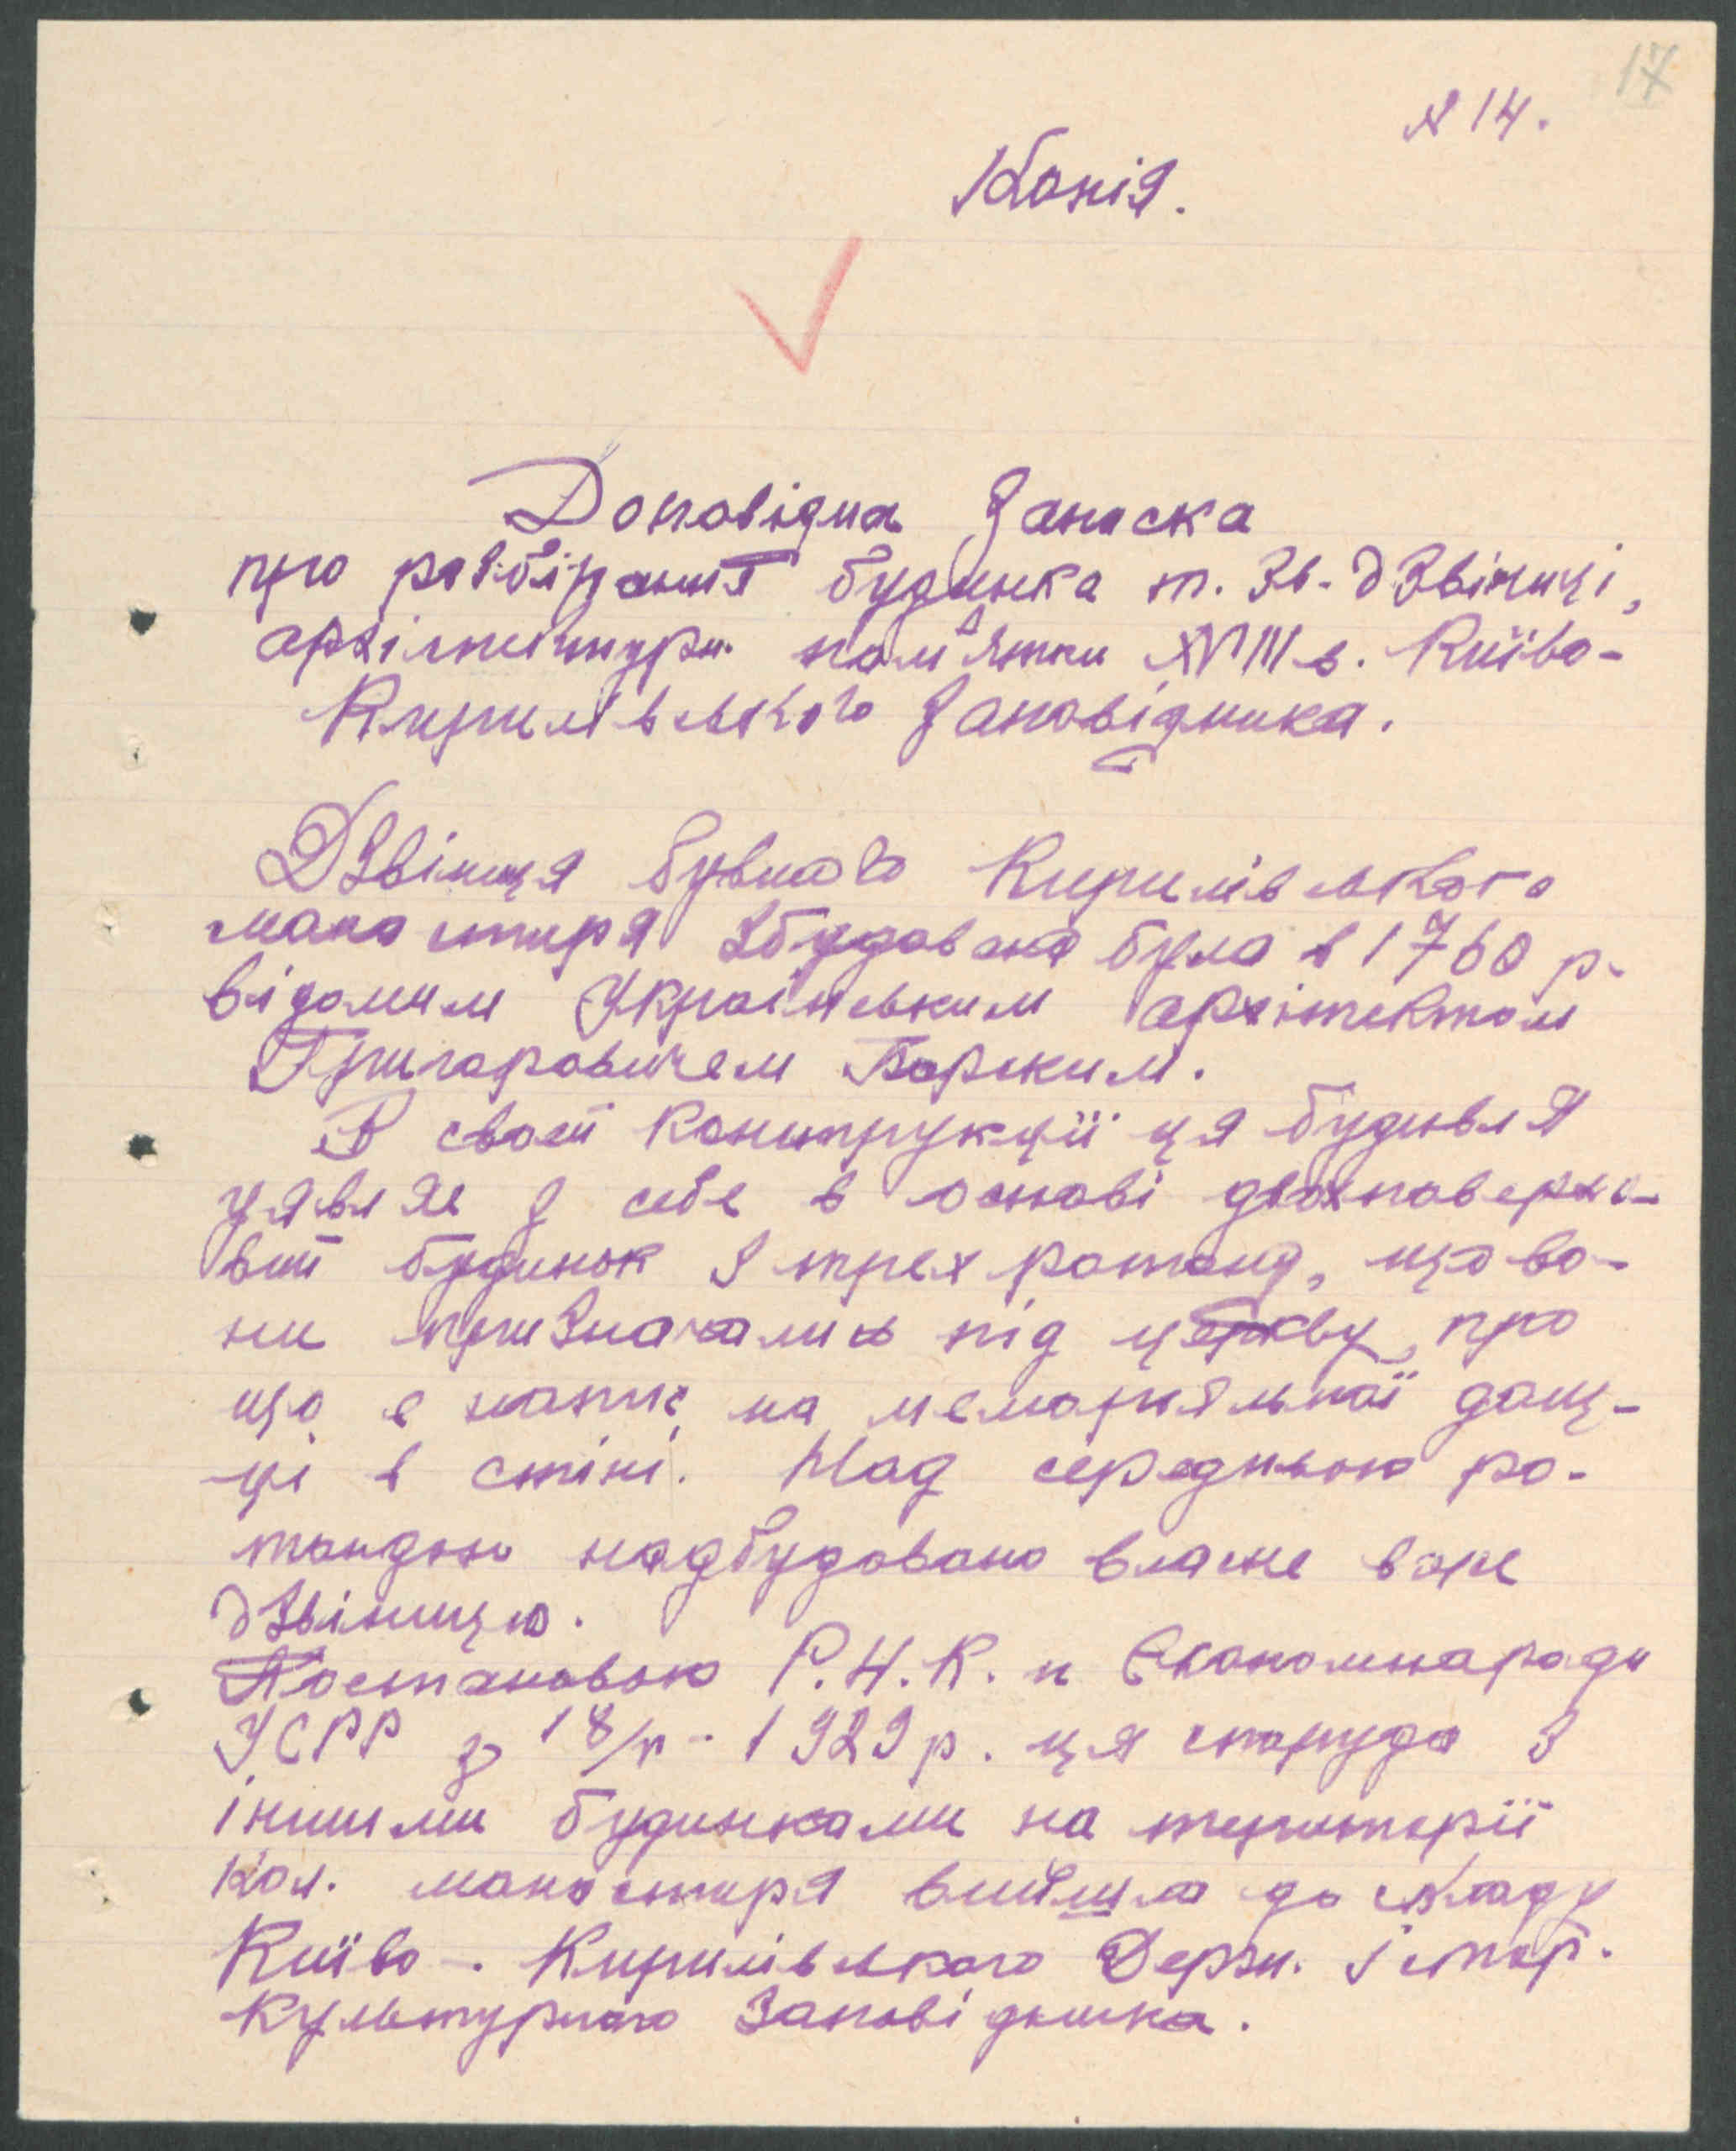 17
№ 14.
Копія.
Доповідна Записка
про розбірання будинка т. Зв. дзвіниці,
архітектурн. пам'ятки XVIII в. Київо-
Кирилівського Заповідника.
Дзвіниця бувшого Кирилівського
манастиря Збудована була в 1760 р.
відомим Українським архітектом
Григоровичем Барським.
В своїй конструкції ця будивля
уявляє з себе в основі двохповерхо-
вий будинок з трех ротонд, що во-
ни призначались під церкву, про
що є напис на меморіяльної дощ-
ці в стіні. Над середньою ро-
тондою надбудовано власне вже
дзвіницю.
Постановою Р.Н.К. и Економнаради
УСРР з 18/ 1929 р. ця споруда з
іншими будинками на територіі
кол. манастиря ввійшла до складу
Київо-Кирилівського Держ. Істор.
культурного Заповідника.